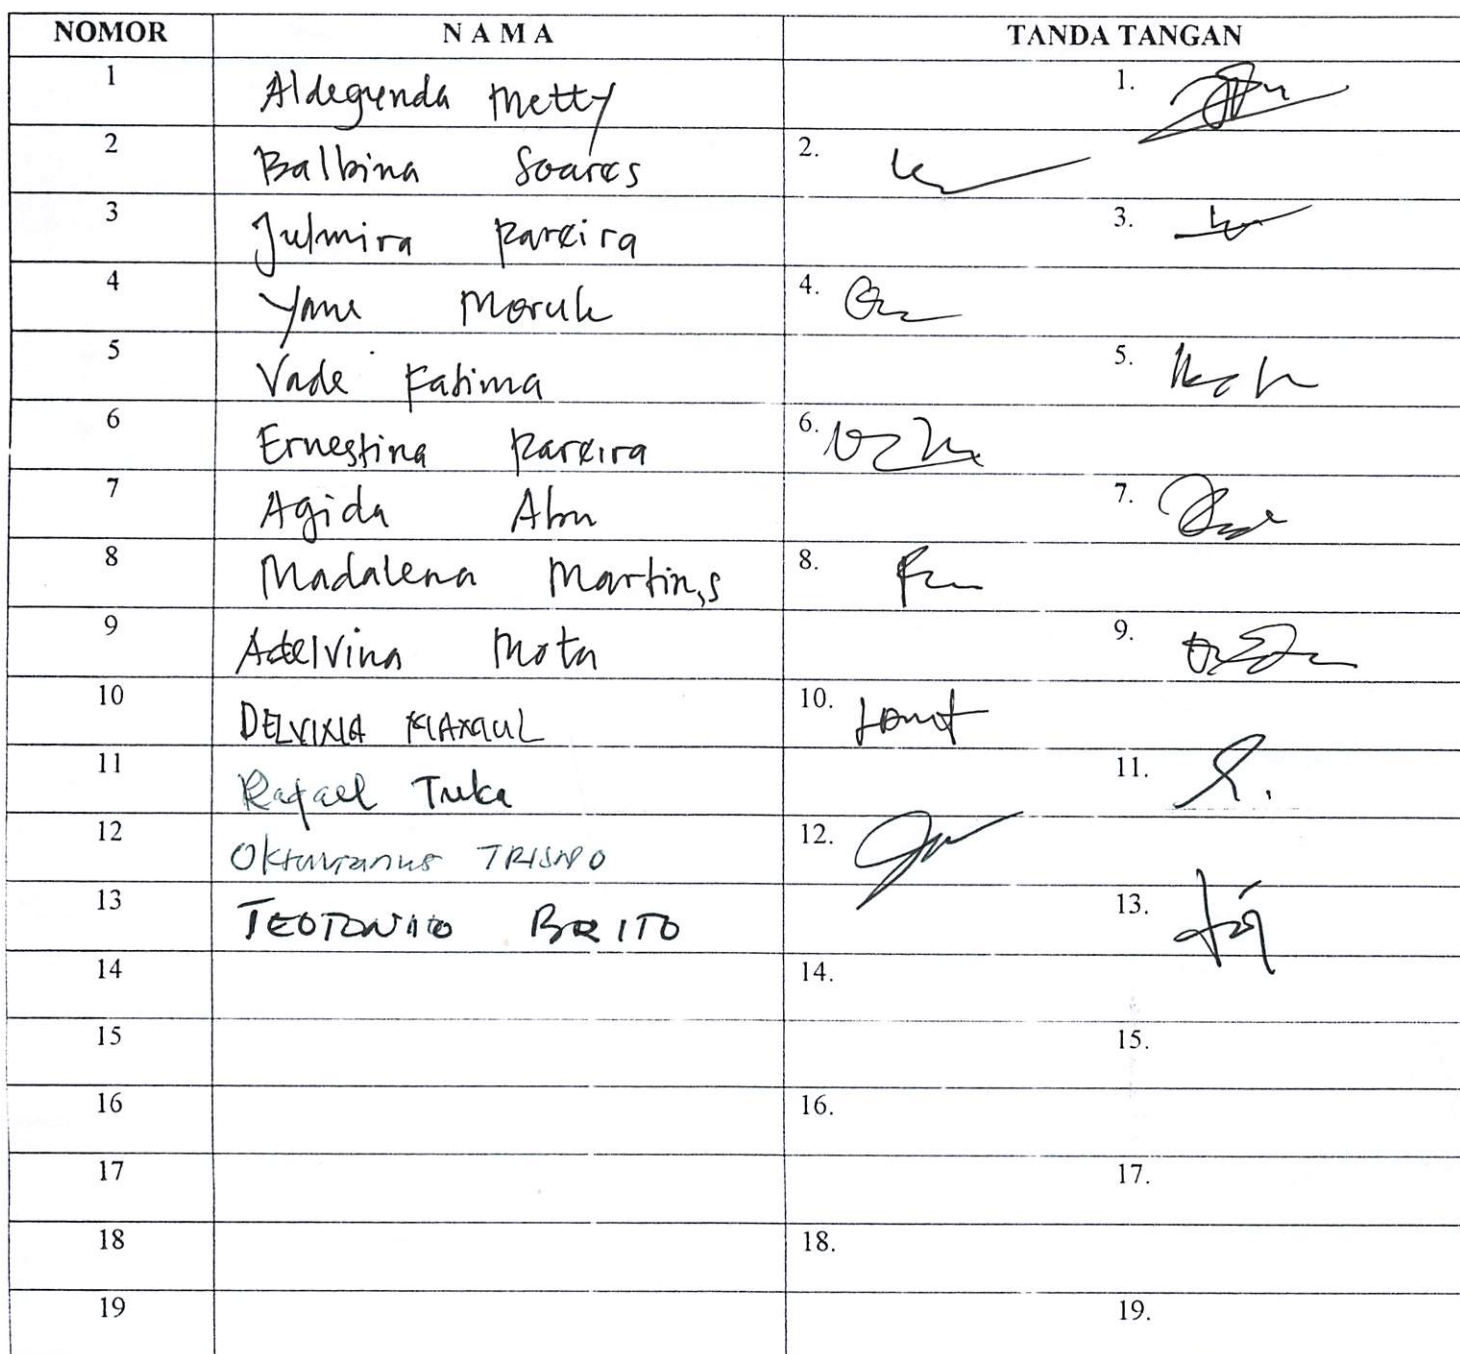 NOMOR N A M A TANDA TANGAN
1 Aldegunda Metty 1.
2 Balbina Soares 2.
3 Julmira Pareira 3.
4 Yane Moruk 4.
5 Vade Fatima 5.
6 Ernestina Pareira 6.
7 Agida Abu 7.
8 Madalena Martin,s 8.
9 Adelvina Mota 9.
10 10.
11 Rafael 11.
12 12.
13 BRITO 13.
14 14.
15 15.
16 16.
17 17.
18 18.
19 19.